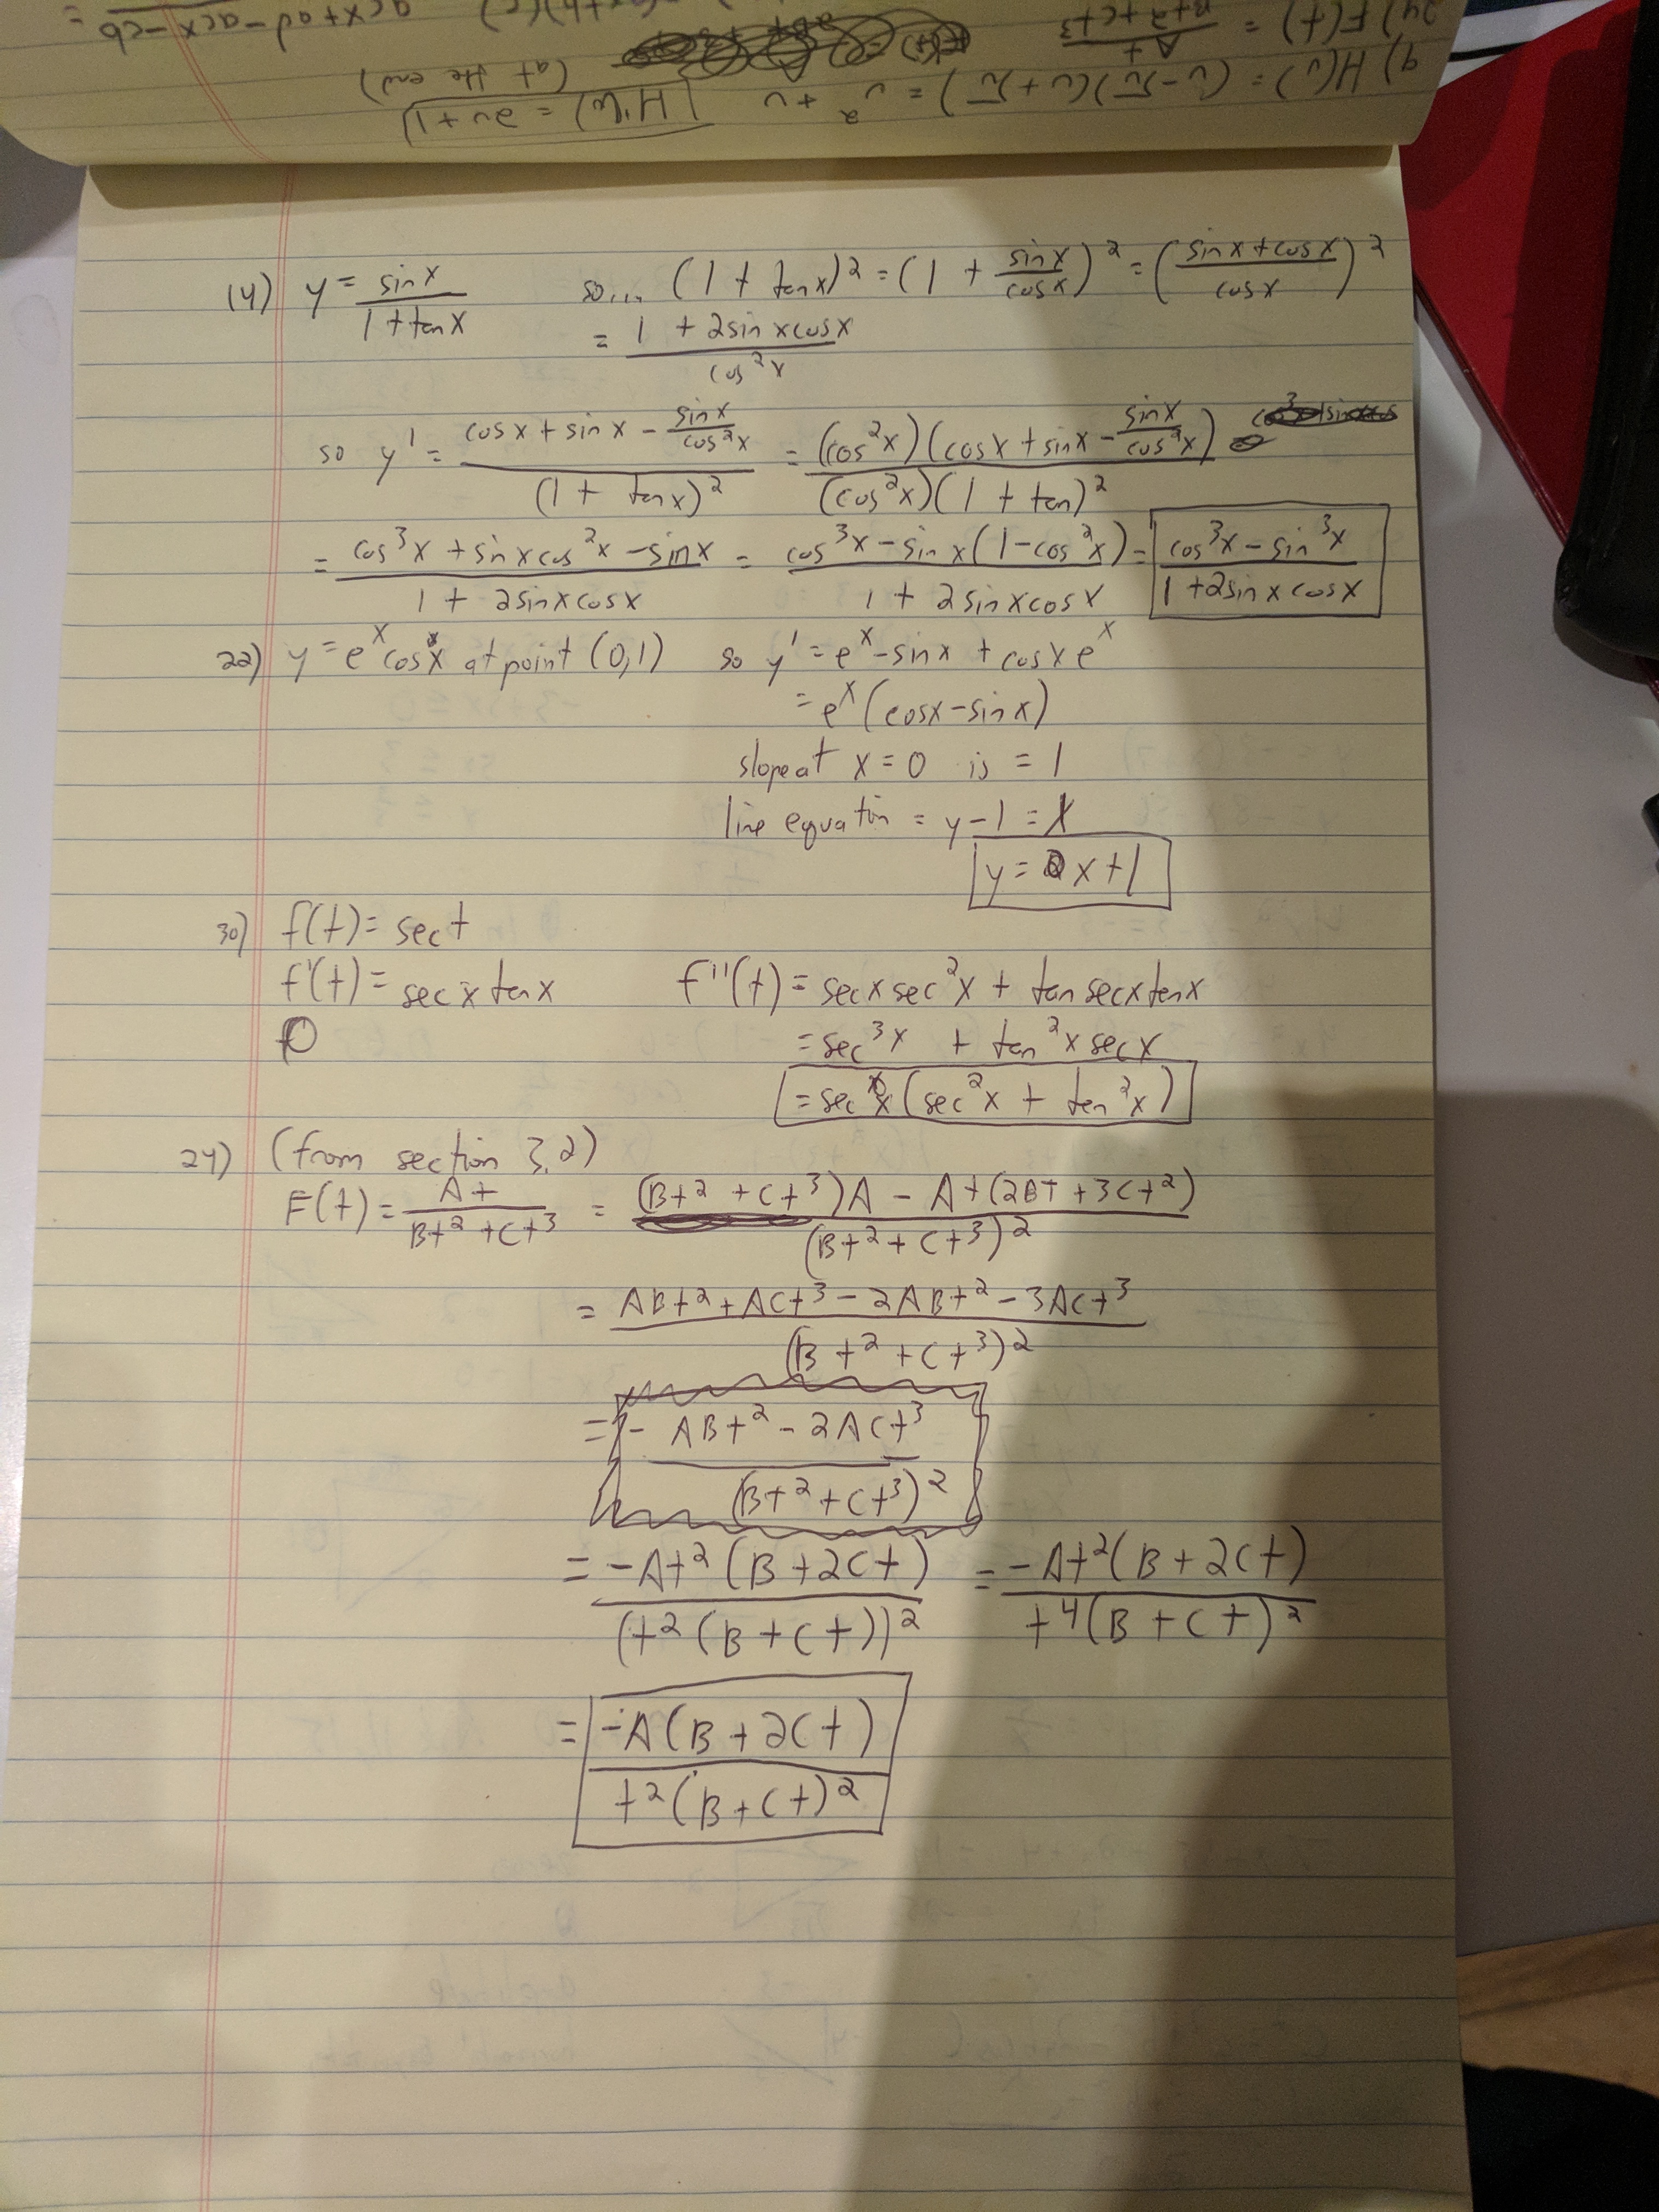 acx+ad-acx-cb =
24) F(t) = At/Bt²+Ct³
9) H(u) = (u-√u)(u+√u) = u² + u H'(u) = 2u+1
(at the end)
14) y = sinx/1+tanx so... (1 + tanx)² = (1 + sinx/cosx)² = (sinx+cosx/cosx)²
= 1 + 2sinxcosx/cos²x
so y' = cosx + sinx - sinx/cos²x/(1 + tanx)² = (cos²x)(cosx + sinx - sinx/cos²x)/(cos²x)(1 + tan)²
= cos³x + sinxcos²x - sinx/1 + 2sinxcosx = cos³x - sinx(1-cos²x)/1 + 2sinxcosx = cos³x - sin³x/1+2sinxcosx
22) y = eˣcosx at point (0,1) so y' = eˣ-sinx + cosxeˣ
= eˣ(cosx-sinx)
slope at x = 0 is = 1
line equation = y-1 = x
y = x+1
30) f(t) = sect
f'(t) = secxtanx f''(t) = secxsec²x + tansecxtanx
= sec³x + tan²xsecx
= secx(sec²x + tan²x)
24) (from section 3.2)
F(t) = At/Bt²+Ct³ = (Bt²+Ct³)A - At(2Bt+3Ct²)/(Bt²+Ct³)²
= ABt²+ACt³-2ABt²-3ACt³/(Bt²+Ct³)²
= -ABt²-2ACt³/(Bt²+Ct³)²
= -At²(B+2Ct)/(t²(B+Ct))² = -At²(B+2Ct)/t⁴(B+Ct)²
= -A(B+2Ct)/t²(B+Ct)²